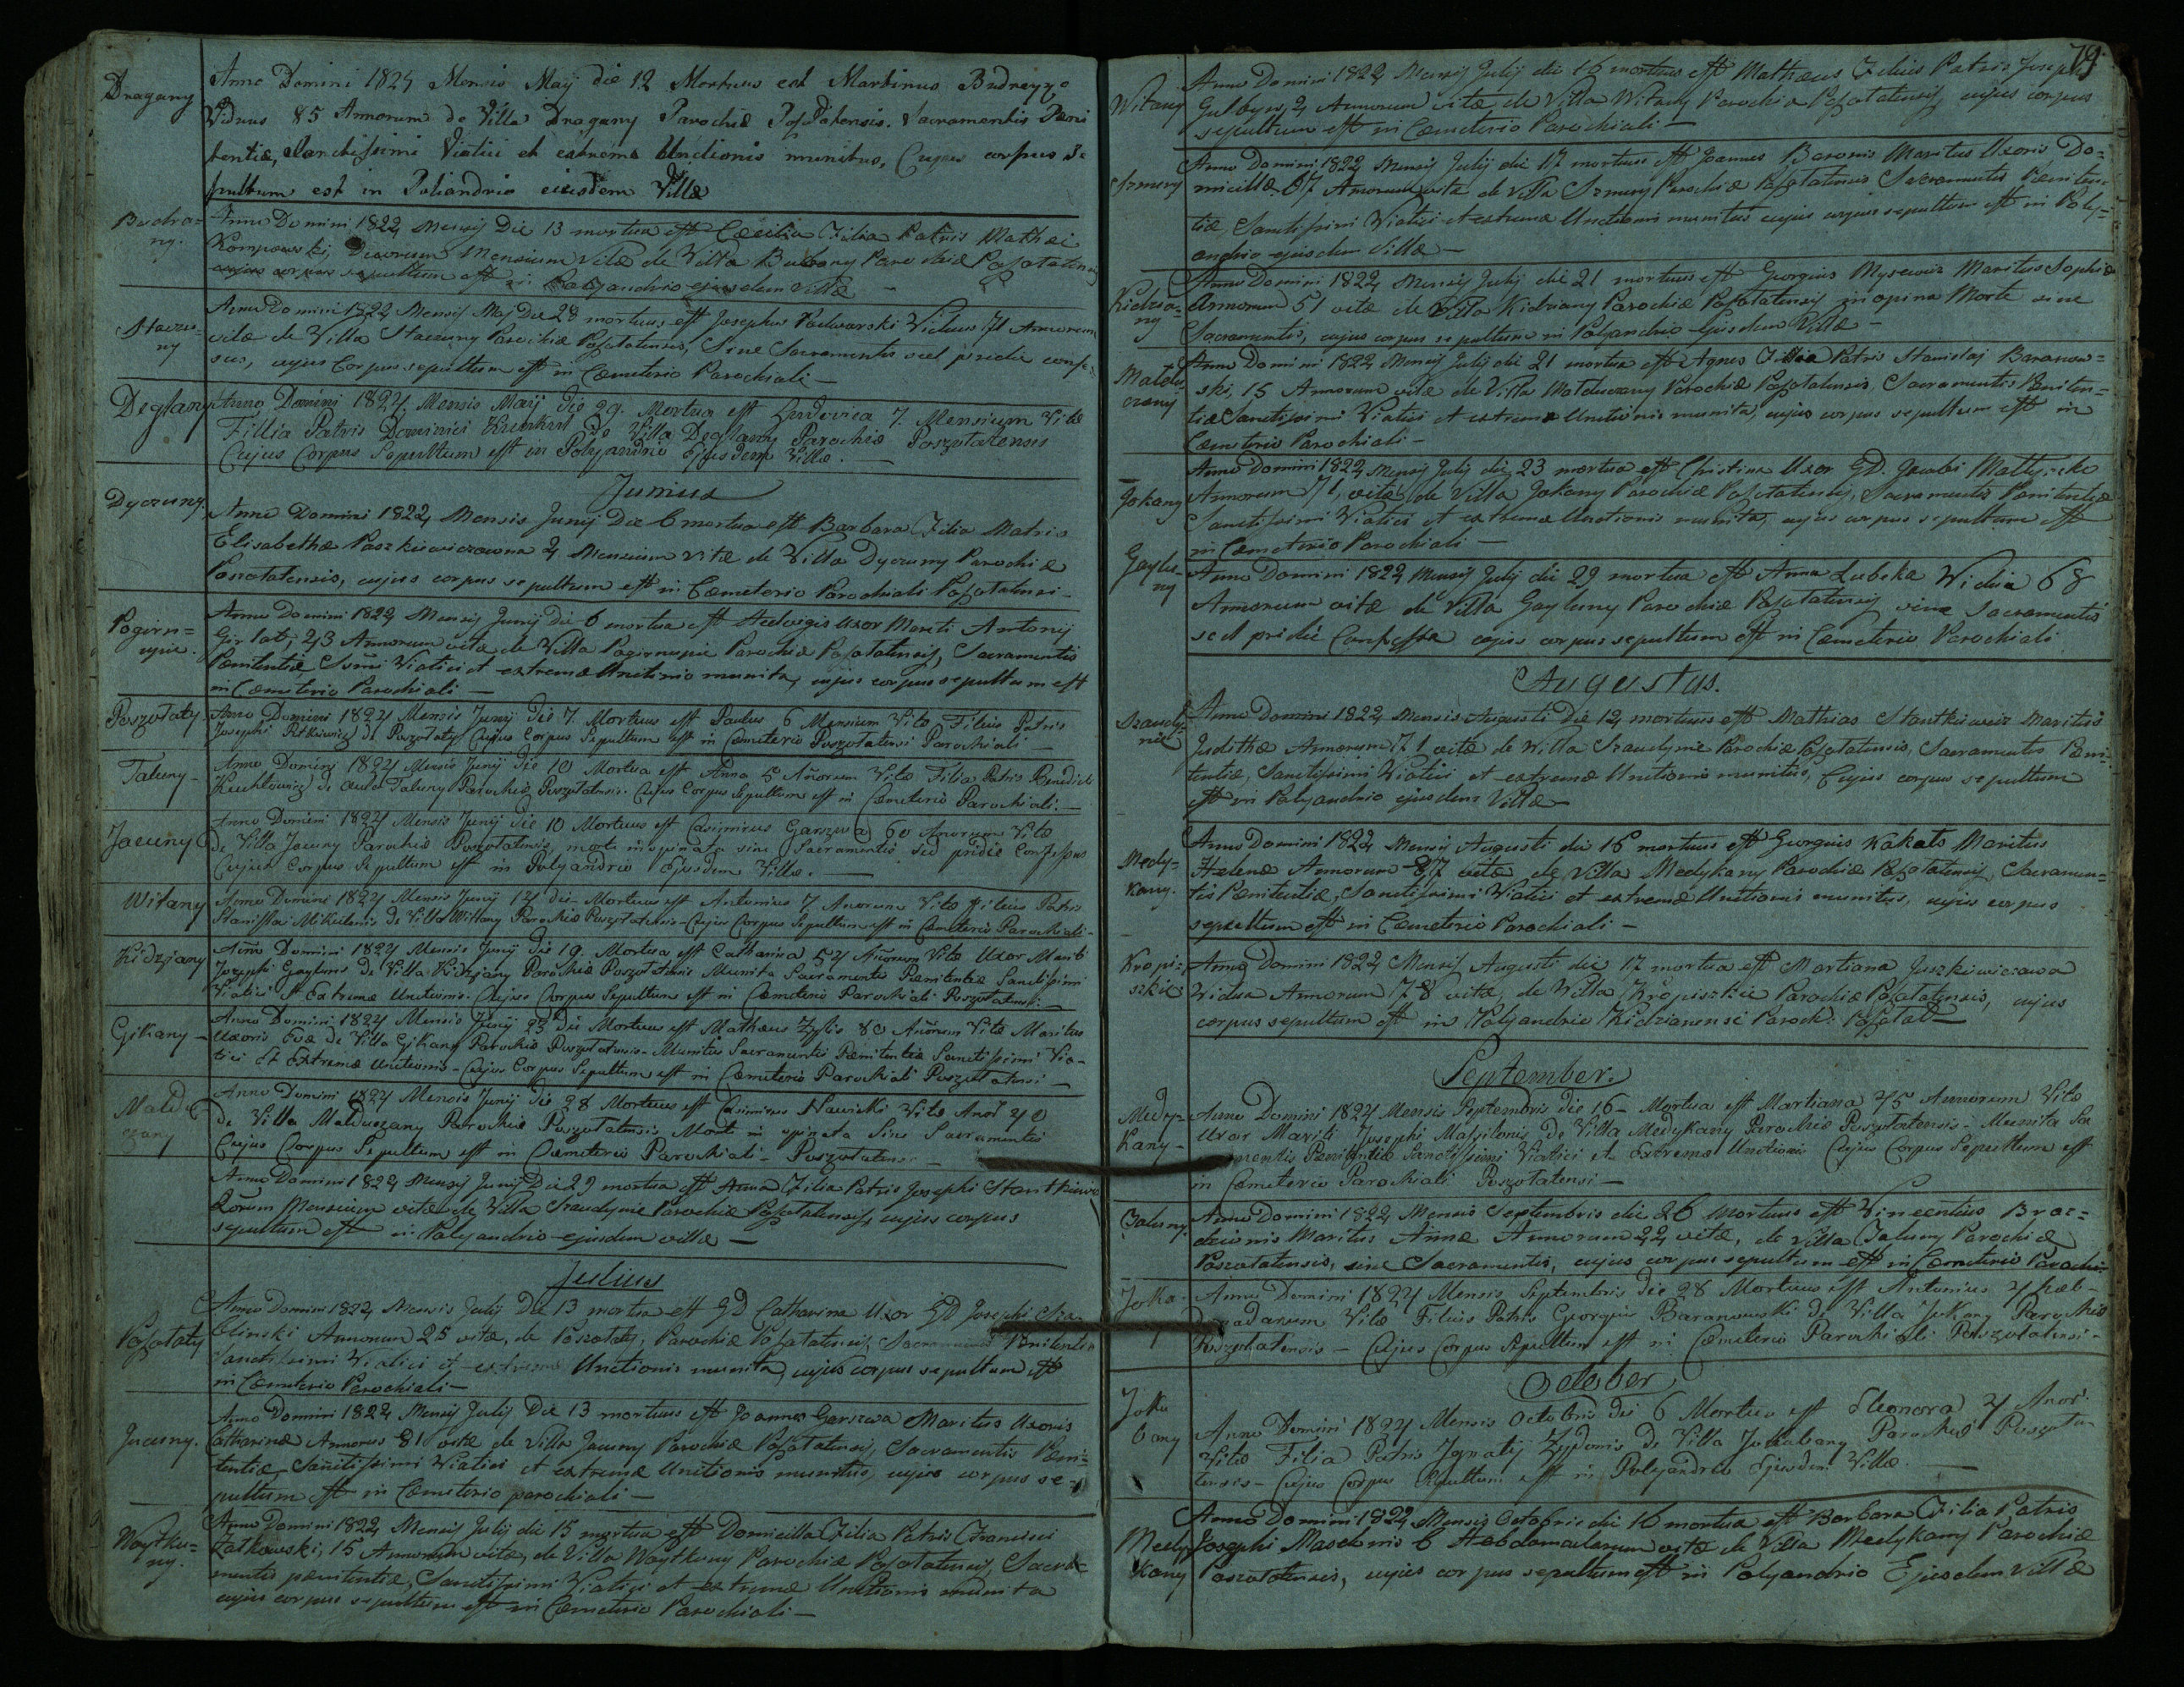 Dragany
Anno Domini 1824 Mensis Maÿ die 12 Mortuus est Martinus Budreyzo
Viduus 85 Annorum de Villa Dragany Parochiæ Posztatensis. Sacramentis Pæni
tentiæ, Sanctissimi Viatici et extremæ Unctionis munitus, Cujus corpus Se
pultum est in Poliandrio ejusdem Villæ
Anno Domini 1824 Mensis Die 13 mortua est Cæcilia Filia Patris Mathei
Kompowski, Mensium vitæ de Villa Parochiæ Poszotatensis
cujus corpus sepultum est in Polyandrio ejusdem Villæ
Staczu=
ny
Anno Domini 1824 Mensis Maj Die 28 mortuus est Josephus Viduus 71 Annorum
vitæ de Villa Staczuny Parochiæ Poszotatensis, Sine Sacramentis sed pridie confes=
sus, cujus Corpus sepultum est in Cæmeterio Parochiali —
Deglany
Anno Domini 1824 Mensis Maij Die 29. Mortua est Ludovica 7. Mensium Vitæ
Fillia Patris Dominici de Villa Deglany Parochiæ Poszotatensis
Cujus Corpus Sepultum est in Polyandrio Ejusdem Villæ. —
Junius
Dyczuny.
Anno Domini 1824 Mensis Junij Die 6 mortua est Barbara Filia Matris
Elisabethæ Paszkiewiczowna 4 Mensium vitæ de Villa Dyczuny Parochiæ
Poszotatensis, cujus corpus sepultum est in Cæmeterio Parochiali
Pogirn=
upie.
Anno Domini 1824 Mensis Junij Die 6 mortua est Hedvigis Uxor Mariti Antonij
Girlat, 43 Annorum vitæ de Villa Pogirnupie Parochiæ Poszotatensis, Sacramentis
Pænitentiæ, Viatici et extremæ Unctionis munita, cujus corpus sepultum est
in Cæmeterio Parochiali —
Poszotaty.
Anno Domini 1824 Mensis Junij Die 7. Mortuus est Paulus 6 Mensium Vitæ Filius Patris
Josephi de Poszotaty Cujus Corpus Sepultum est in Cæmeterio Poszotatensi Parochiali —
Taluny —
Anno Domini 1824 Mensis Junij Die 10 Mortua est Anna 5 Añorum Vitæ Filia Patris Benedicti
de Aula Taluny Parochiæ Poszotatensis. Cujus Corpus Sepultum est in Cæmeterio Parochiali. —
Jacuny
Anno Domini 1824 Mensis Junij Die 10 Mortuus est Casimirus Garszwa 60 Anorum Vitæ
de Villa Jacuny Parochiæ Poszotatensis, morte inopinata sine Sacramentis sed pridie Confessus
Cujus Corpus Sepultum est in Polyandrio Ejusdem Villæ. —
Witany
Anno Domini 1824 Mensis Junij 14 die Mortuus est Antonius 7 Anorum Vitæ Filius Patris
Stanislai de Villa Wittany Parochiæ Poszotatensis - Cujus Corpus Sepultum est in Cæmeterio Parochiali -
Kidzjany
Año Domini 1824 Mensis Junij Die 19. Mortua est Catharina 54 Añorum Vitæ Uxor Mariti
Josephi de Villa Kidzjany Parochiæ Poszotatensis Munita Sacramentis Pænitentiæ Sanctissimi
Viatici et Extremæ Unctionis. Cujus Corpus Sepultum est in Cæmeterio Parochiali Poszotatensi. —
Gikany —
Anno Domini 1824 Mensis Junij 23 Die Mortuus est Mathæus Zylis 80 Añorum Vitæ Maritus
Uxoris Evæ de Villa Gikany Parochiæ Poszotatensis - Munitus Sacramentis Pænitentiæ Sanctissimi Via-
tici Et Extremæ Unctionis - Cujus Corpus Sepultum est in Cæmeterio Parochiali Poszotatensi —
Anno Domini 1824 Mensis Junij Die 28 Mortuus est Casimirus Nawicki Vitæ Anor 40
de Villa Malduczany Parochiæ Poszotatensis Morte in opinata Sine Sacramentis
Cujus Corpus Sepultum est in Cæmeterio Parochiali - Poszotatensi —
Anno Domini 1824 Mensis Junij Die 29 mortua est Anna Filia Patris Josephi
Mensium vitæ de Villa Szaudynie Parochiæ Poszotatensis cujus corpus
sepultum est in Polyandrio ejusdem villæ —
Julius
Poszotaty
Anno Domini 1824 Mensis Julij Die 13 mortua est GD Catharina Uxor GD Josephi Sza
blinski Annorum 25 vitæ, de Poszotaty, Parochiæ Poszotatensis, Sacramentis Pænitentiæ
Sanctissimi Viatici et extremæ Unctionis munita, cujus corpus sepultum est
in Cæmeterio Parochiali —
Jacuny.
Anno Domini 1824 Mensis Julij Die 13 mortuus est Joannes Garszwa Maritus Uxoris
Catharinæ Annorum 81 vitæ de Villa Jacuny Parochiæ Poszotatensis, Sacramentis Pæni=
tentiæ, Sanctissimi Viatici et extremæ Unctionis munitus, cujus corpus se=
pultum est in Cæmeterio parochiali —
Woytku=
ny.
Anno Domini 1824 Mensis Julij die 15 mortua est Domicilla Filia Patris Francisci
Zatkowski, 15 Annorum vitæ, de Villa Woytkuny Parochiæ Poszotatensis, Sacra=
mentis pænitentiæ, Sanctissimi Viatici et extremæ Unctionis munita
cujus corpus sepultum est in Cæmeterio Parochiali —
79.
Witany
Anno Domini 1824 Mensis Julij die 16 mortuus est Mathæus Filius Patris Josephi
2 Annorum vitæ, de Villa Witany Parochiæ Poszotatensis cujus corpus
sepultum est in Cæmeterio Parochiali —
Szmury
Anno Domini 1824 Mensis Julij die 17 mortuus est Joannes Baronis Maritus Uxoris Do=
micillæ 67 Annorum vitæ de Villa Szmury Parochiæ Poszotatensis Sacramentis Pæniten=
tiæ, Sanctissimi Viatici et extremæ Unctionis munitus cujus corpus sepultum est in Poly=
andrio ejusdem Villæ —
Kidzia=
ny
Anno Domini 1824 Mensis Julij die 21 mortuus est Georgius Maritus Sophiæ
Annorum 51 vitæ de Villa Kidziany Parochiæ Poszotatensis inopina Morte sine
Sacramentis, cujus corpus sepultum in Polyandrio Ejusdem Villæ —
Maldu
czany
Anno Domini 1824 Mensis Julij die 21 mortua est Agnes Filia Patris Stanislaj Baranow=
ski, 15 Annorum vitæ de Villa Malduczany Parochiæ Poszotatensis. Sacramentis Pæniten=
tiæ Sanctissimi Viatici et extremæ Unctionis munita, cujus corpus sepultum est in
Cæmeterio Parochiali —
Jokany
Anno Domini 1824 Mensis Julij die 23 mortua est Christina Uxor GD. Jacobi
Annorum 71, vitæ de Villa Jokany Parochiæ Poszotatensis, Sacramentis Pænitentiæ
Sanctissimi Viatici et extremæ Unctionis munita, cujus corpus sepultum est
in Cæmeterio Parochiali —
Gaylu=
ny
Anno Domini 1824 Mensis Julij die 29 mortua est Anna Lubeka Vidua 68
Annorum vitæ de Villa Gayluny Parochiæ Poszotatensis sine Sacramentis
sed pridie Confessa cujus corpus sepultum est in Cæmeterio Parochiali
Augustus.
Szaudy=
nie
Anno Domini 1824 Mensis Augusti Die 12 mortuus est Mathias Stautkiewicz Maritus
Judithæ Annorum 71 vitæ de Villa Szaudynie Parochiæ Poszotatensis, Sacramentis Pæni=
tentiæ, Sanctissimi Viatici et extremæ Unctionis munitus, Cujus corpus sepultum
est in Polyandrio ejusdem Villæ —
Medy=
kany.
Anno Domini 1824 Mensis Augusti die 16 mortuus est Georgius Kakals Maritus
Helenæ Annorum 87 vitæ de Villa Medykany Parochiæ Poszotatensis, Sacramen=
tis Pænitentiæ, Sanctissimi Viatici et extremæ Unctionis munitus, cujus corpus
sepultum est in Cæmeterio Parochiali —
Kropi=
szkie.
Anno Domini 1824 Mensis Augusti die 17 mortua est Martiana Juszkiewiczowa
Vidua Annorum 78 vitæ, de Villa Kropiszkie Parochiæ Poszotatensis, cujus
corpus sepultum est in Polyandrio Kidzianensi Paroch: Poszotat —
September.
Medy-
kany —
Anno Domini 1824 Mensis Septembris Die 16 - Mortua est Martiana 45 Annorum Vitæ
Uxor Mariti Josephi de Villa Medykany Parochiæ Poszotatensis - Munita Sa
mentis Pænitentiæ Sanctissimi Viatici et Extremæ Unctionis Cujus Corpus Sepultum est
in Cæmeterio Parochiali Poszotatensi —
Anno Domini 1824 Mensis Septembris die 26 mortuus est Vincentius
Maritus Annæ Annorum 22 vitæ, de Villa Taluny Parochiæ
Poszotatensis, sine Sacramentis, cujus corpus sepultum est in Cæmeterio Parochi
Joka
Anno Domini 1824 Mensis Septembris Die 28 Mortuus est Antonius 4 hæb-
domadarum Vitæ Filius Patris Georgii Baranowski de Villa Jokany Parochiæ
Poszotatensis — Cujus Corpus Sepultum est in Cæmeterio Parochiali Poszotatensi -
October
Joku
bany
Anno Domini 1824 Mensis Octobris Die 6 Mortua est Eleonora 4 Anor
Vitæ Filia Patris Ignatij de Villa Jokubany Parochiæ Poszota-
tensis - Cujus Corpus Sepultum est in Polyandrio Ejusdem Villæ. —
Medy
kany
Anno Domini 1824 Mensis Octobris die 16 mortua est Barbara Filia Patris
Josephi 6 Hebdomadarum vitæ de Villa Medykany Parochiæ
Poszotatensis, cujus corpus sepultum est in Polyandrio Ejusdem Villæ